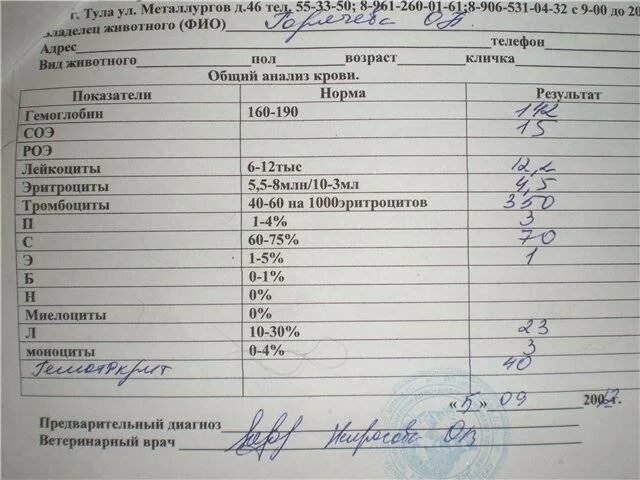 г. Тула ул. Металлургов д.46 тел. 55-33-50; 8-961-260-01-61;8-906-531-04-32 с 9-00 до 20
Владелец животного (ФИО) Горячева О.П.
Адрес телефон
Вид животного пол возраст кличка
Общий анализ крови.
Показатели Норма Результат
Гемоглобин 160-190 142
СОЭ 15
РОЭ
Лейкоциты 6-12тыс 12,2
Эритроциты 5,5-8млн/10-3мл 4,5
Тромбоциты 40-60 на 1000эритроцитов 350
П 1-4% 3
С 60-75% 70
Э 1-5% 1
Б 0-1%
Н 0%
Миелоциты 0%
Л 10-30% 23
моноциты 0-4% 3
Гематокрит 40
«5» 09 200 г.
Предварительный диагноз
Ветеринарный врач